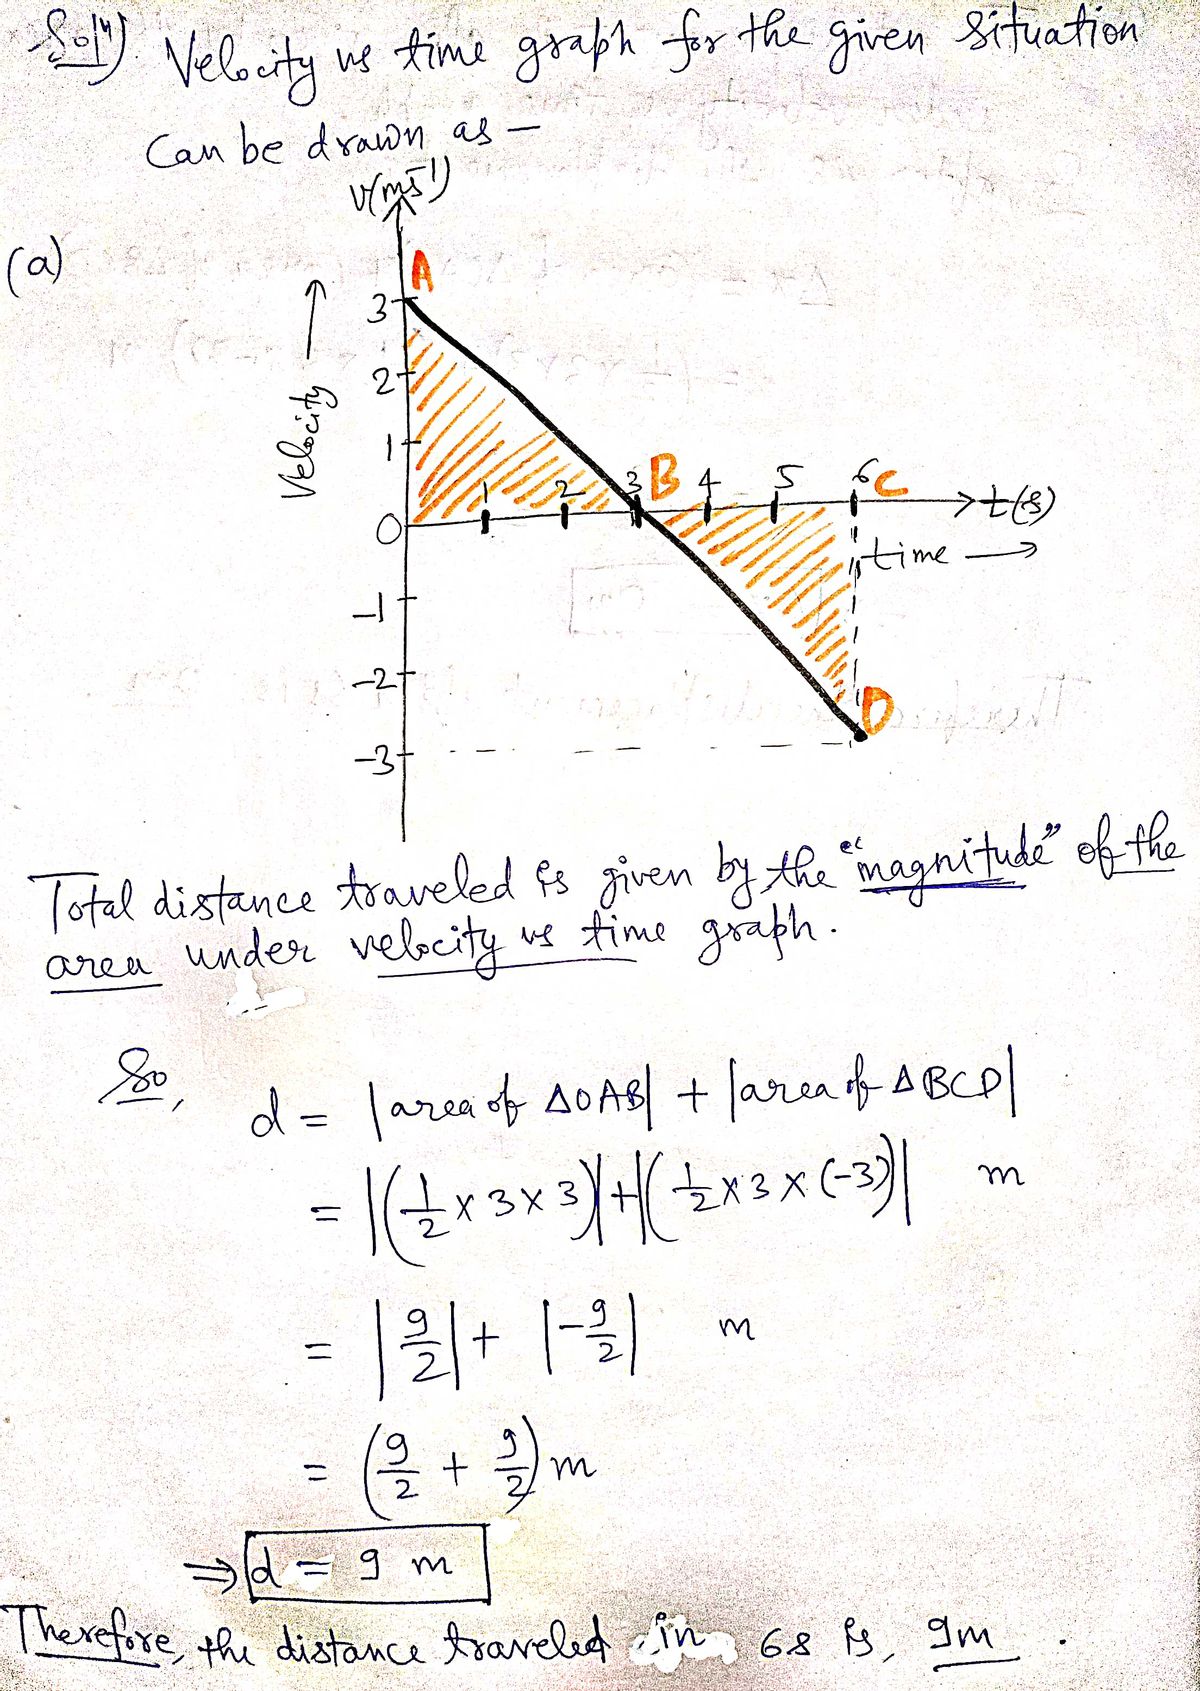 Solⁿ) Velocity vs time graph for the given situation
Can be drawn as —
v(ms⁻¹)
(a)
A
3
2
1
0
-1
-2
-3
Velocity →
1 2 3 B 4 5 6 C → t(s)
time →
D
Total distance traveled is given by the "magnitude" of the
area under velocity vs time graph.
So, d = |area of ΔOAB| + |area of ΔBCD|
= |(1/2 × 3 × 3)| + |(1/2 × 3 × (-3))| m
= |9/2| + |-9/2| m
= (9/2 + 9/2) m
⇒ d = 9 m
Therefore, the distance traveled in 6s is, 9m .